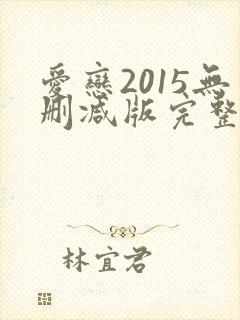 愛戀2015無
刪減版完整
林宜君